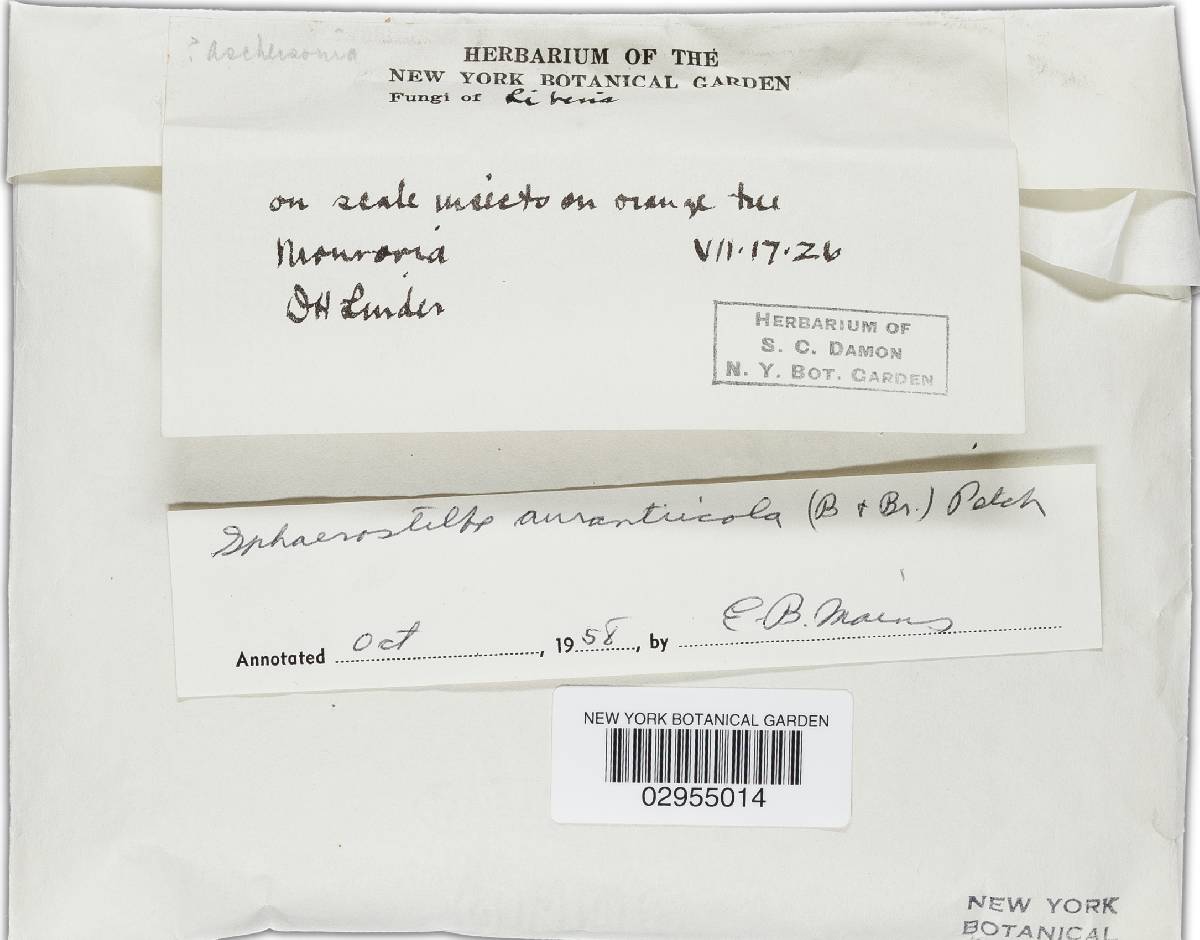 ? Aschersonia
HERBARIUM OF THE
NEW YORK BOTANICAL GARDEN
Fungi of Liberia
on scale insects on orange tree
Monrovia VII·17·26
DH Linder
HERBARIUM OF
S. C. DAMON
N. Y. BOT. GARDEN
Sphaerostilbe aurantiicola (B & Br.) Petch
Annotated Oct, 1958, by E.B. Mains
NEW YORK BOTANICAL GARDEN
02955014
NEW YORK
BOTANICAL